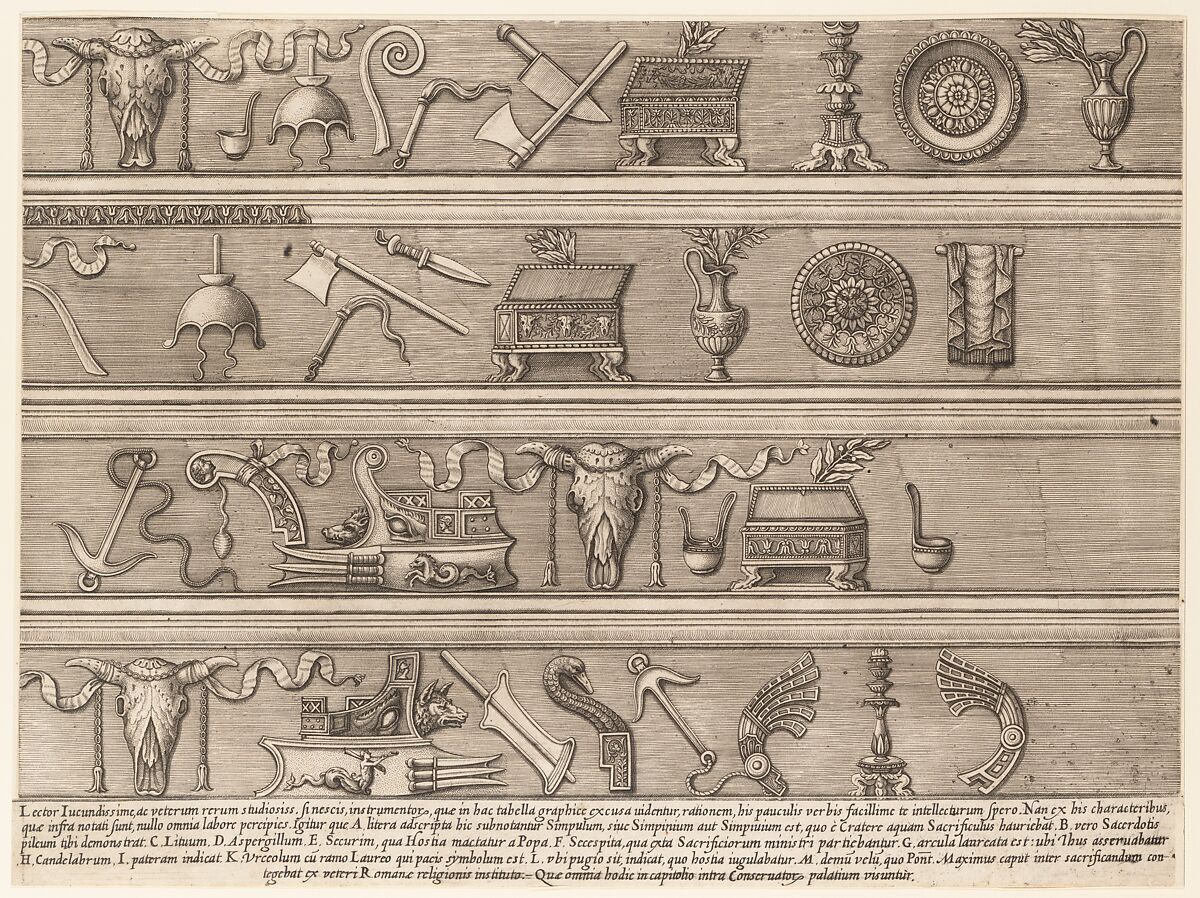 Lector Iucundissime, ac veterum rerum studiosiss. si nescis, instrumentoꝝ, quæ in hac tabella graphice excusa uidentur, rationem, his pauculis verbis facillime te intellecturum spero. Nan ex his characteribus,
quæ infra notati sunt, nullo omnia labore percipies. Igitur que A. litera adscripta hic subnotantur Simpulum, siue Simpinium aut Simpiuium est, quo è Cratere aquam Sacrificulus hauriebat. B. vero Sacerdotis
pileum tibi demonstrat. C. Lituum. D. Aspergillum. E. Securim, qua Hostia mactatur a Popa. F. Secespita, qua exta Sacrificiorum ministri partiebantur. G. arcula laureata est: ubi Thus asseruabatur
H. Candelabrum, I. pateram indicat. K. Vrceolum cū ramo Laureo qui pacis symbolum est. L. vbi pugio sit, indicat, quo hostia iugulabatur. M. demū velū, quo Pont. Maximus caput inter sacrificandum con-
tegebat ex veteri Romanæ religionis instituto. – Quæ omnia hodie in capitolio intra Conseruatoꝝ palatium visuntur.